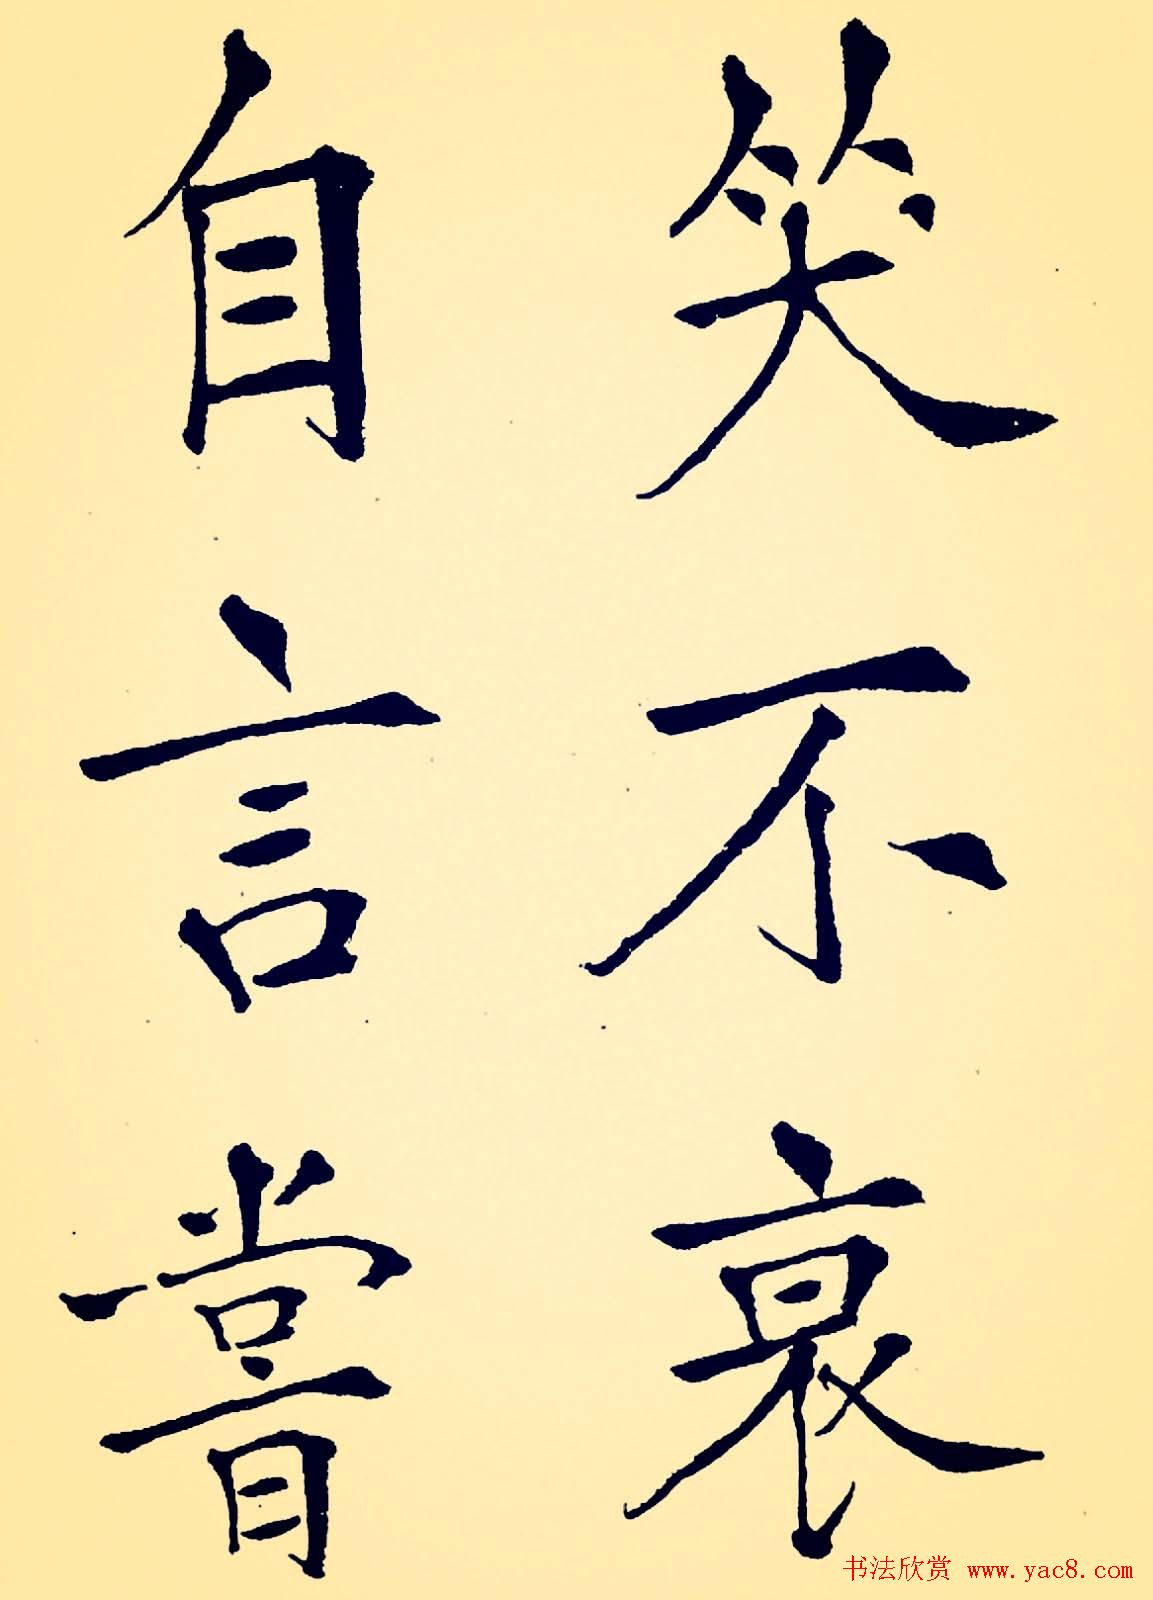 笑不衰
自言嘗
书法欣赏 www.yac8.com